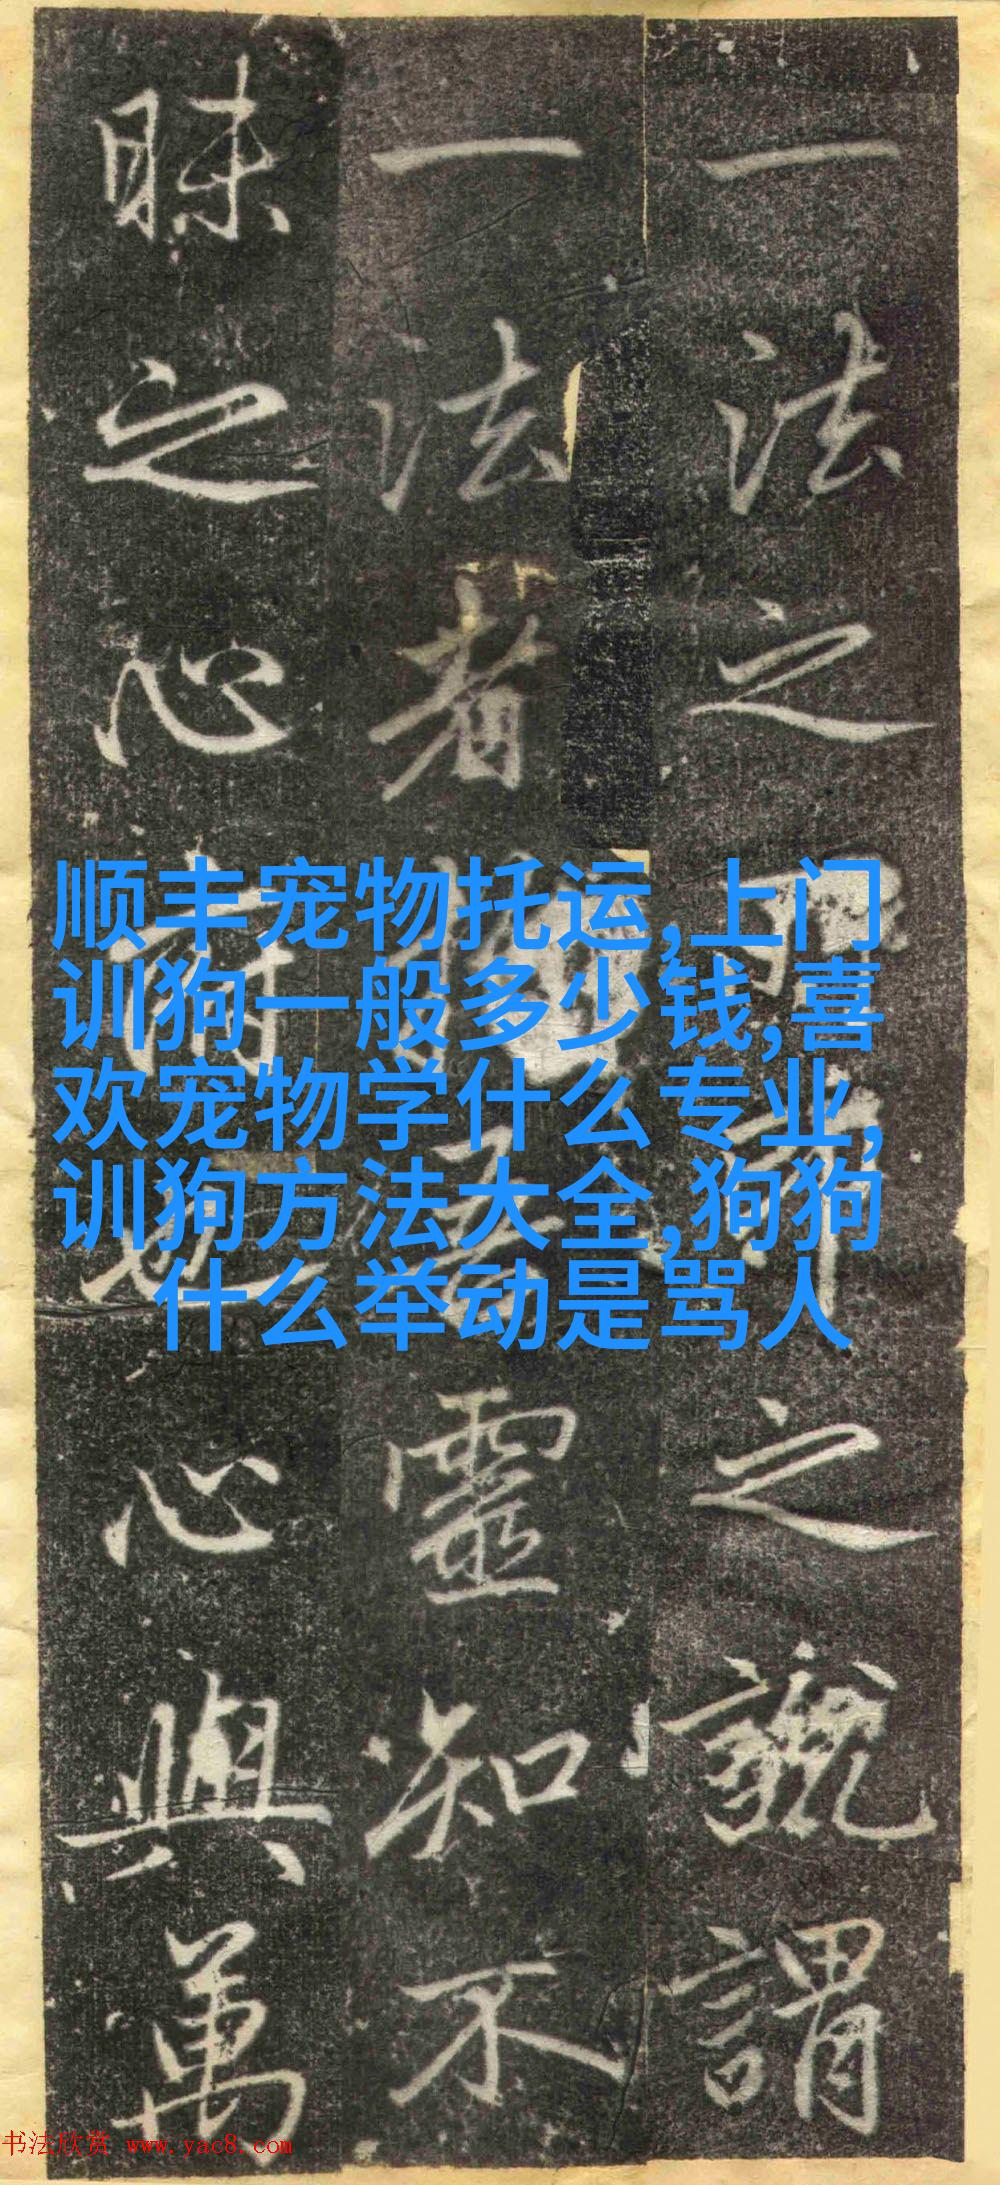 一法之之號謂
一法者靈知不
昧之心也心與萬
顺丰宠物托运,上门
训狗一般多少钱,喜
欢宠物学什么专业,
训狗方法大全,狗狗
什么举动是骂人
书法欣赏 www.yac8.com